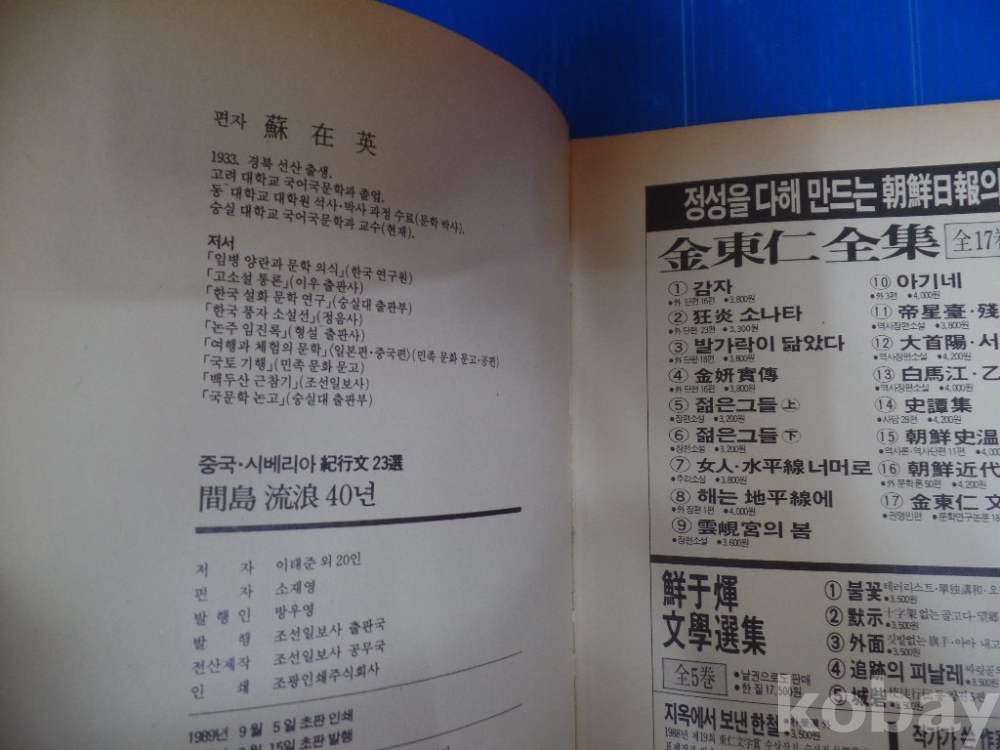 편자 蘇 在 英
1933. 경북 선산 출생.
고려 대학교 국어국문학과 졸업.
동 대학교 대학원 석사·박사 과정 수료(문학 박사).
숭실 대학교 국어국문학과 교수(현재).
저서
「임병 양란과 문학 의식」(한국 연구원)
「고소설 통론」(이우 출판사)
「한국 설화 문학 연구」(숭실대 출판부)
「한국 풍자 소설선」(정음사)
「논주 임진록」(형설 출판사)
「여행과 체험의 문학」〈일본편·중국편〉(민족 문화 문고·공편)
「국토 기행」(민족 문화 문고)
「백두산 근참기」(조선일보사)
「국문학 논고」(숭실대 출판부)
중국·시베리아 紀行文 23選
間島 流浪 40년
저 자 이태준 외 20인
편 자 소재영
발 행 인 방우영
발 행 조선일보사 출판국
전산제작 조선일보사 공무국
인 쇄 조광인쇄주식회사
1989년 9월 5일 초판 인쇄
15일 초판 발행
정성을 다해 만드는 朝鮮日報의
金東仁全集 全17卷
① 감자
●外 단편 16편 ●3,800원
② 狂炎 소나타
●外 단편 23편 ●3,300원
③ 발가락이 닮았다
●外 단편 18편 ●3,800원
④ 金姸實傳
●外 단편 16편 ●3,800원
⑤ 젊은그들 上
●장편소설 ●3,200원
⑥ 젊은그들 下
●장편소설 ●3,200원
⑦ 女人·水平線너머로
●추리소설 ●3,800원
⑧ 해는 地平線에
●外 장편 1편 ●4,000원
⑨ 雲峴宮의 봄
●장편소설 ●3,600원
⑩ 아기네
●外 3편 ●4,000원
⑪ 帝星臺·殘
●역사장편소설 ●3,800원
⑫ 大首陽·서
●역사장편소설 ●4,200원
⑬ 白馬江·乙
●역사장편소설 ●4,000원
⑭ 史譚集
●사담 28편 ●4,200원
⑮ 朝鮮史温
●역사론·역사단편 11편 ●4,00
⑯ 朝鮮近代
●外 문학론 50편 ●4,200원
⑰ 金東仁 文
●권영민편 ●문학연구논문 18
鮮于煇
文學選集
全5卷
●낱권으로도 판매
●한 질 17,500원
① 불꽃 테러리스트·單独講和·오
●3,500원
② 默示 十字架 없는 골고다·望鄕
●3,500원
③ 外面 깃발없는 旗手·아아 내고
●3,500원
④ 追跡의 피날레 싸릿골의
●3,500원
⑤ 城砦
●3,500원
지옥에서 보낸 한철
1988년 제19회 東仁文學賞 수상
작가가 쓴 作
kobay